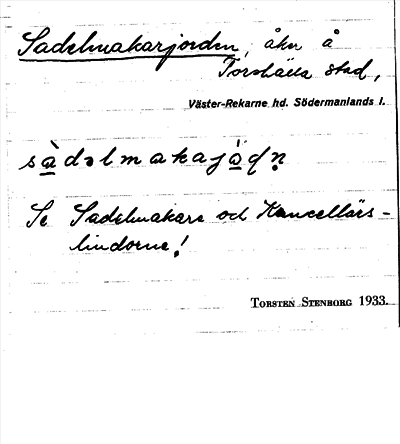 Sadelmakarjorden, åker å
Torshälla stad,
Väster-Rekarne hd. Södermanlands l.
sàdəlmakajò̱ɖn̥
Se Sadelmakare och Kancellärs-
lindorna!
TORSTEN STENBORG 1933.